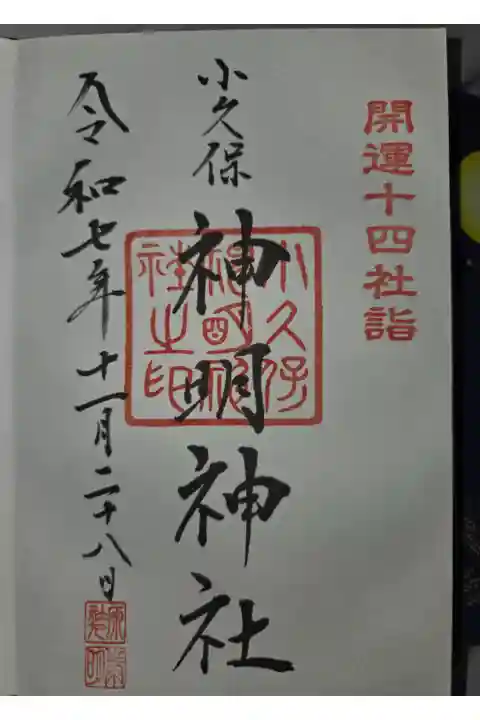 開運十四社詣
小久保
神明神社
小久保神明神社之印
令和七年十一月二十八日